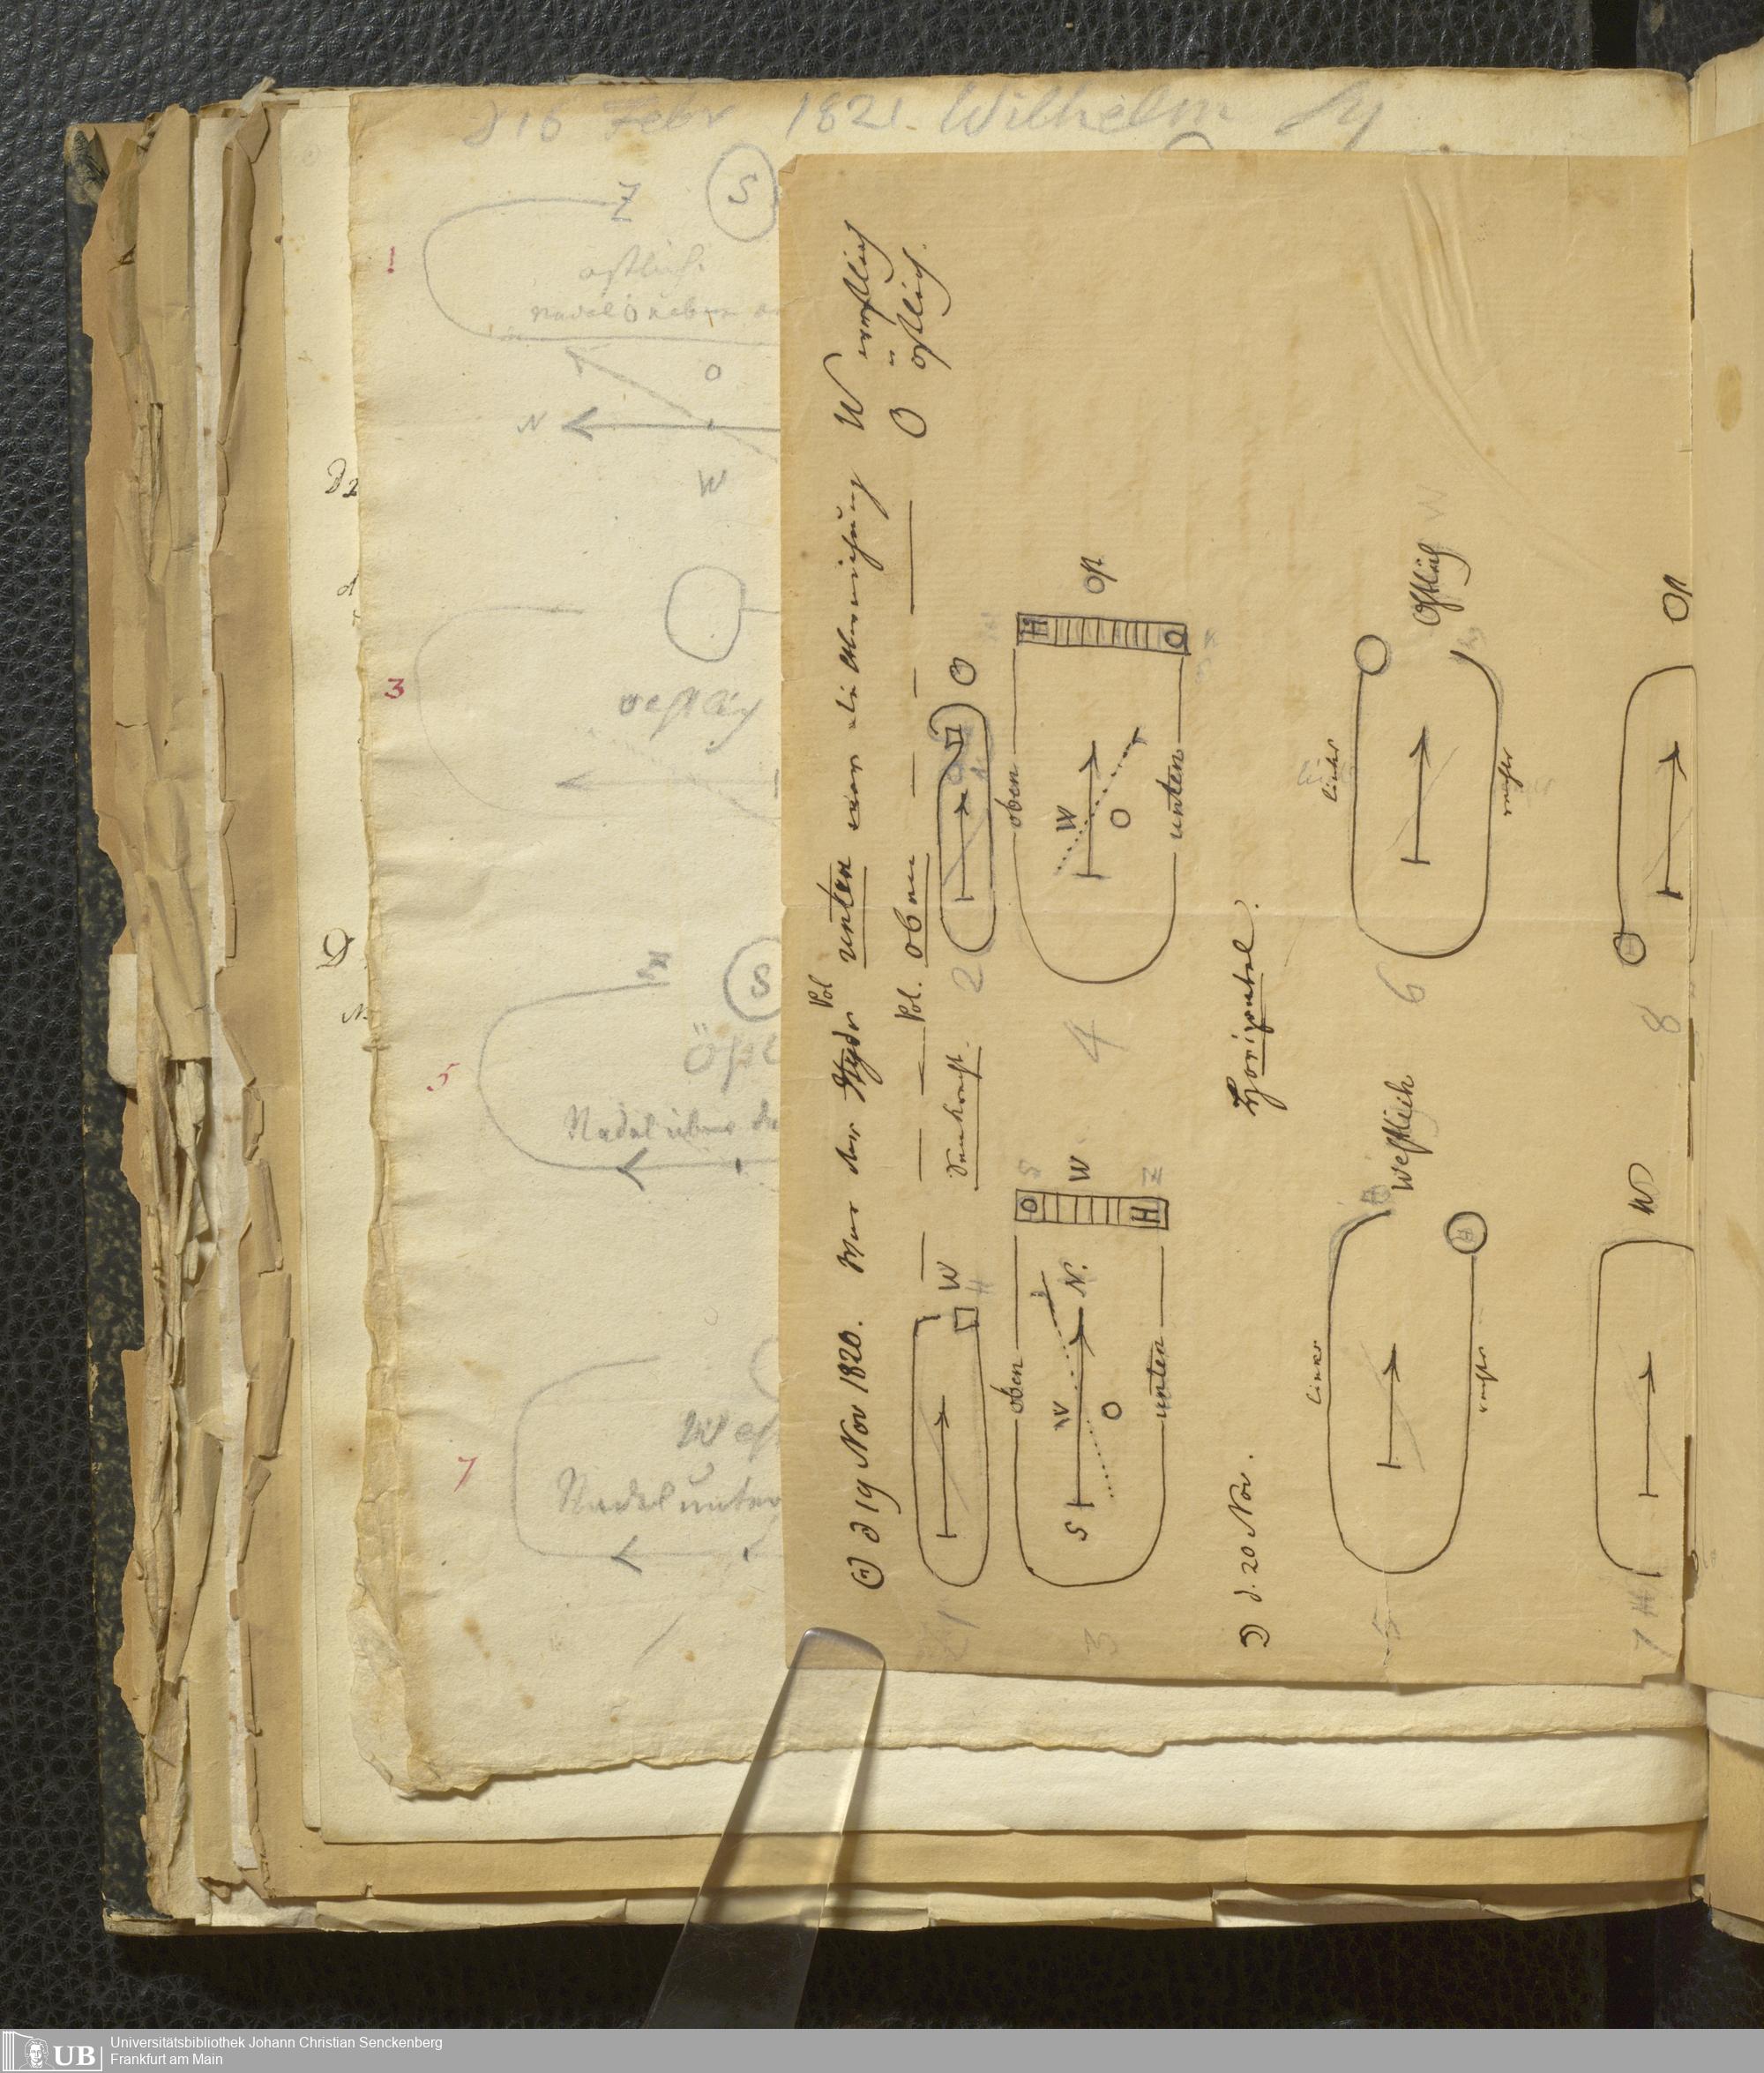 d 16 Febr 1821. Wilhelm
1
Z
S
östlich.
Nadel
O
N
W
3
westlich
5
Z
S
Östl
Nadel über
7
West
Nadel unter
☉ d 19 Nov 1820. War der Hydr Pol unten war die Abweichung W westlich
Pol. oben O östlich.
Senkrecht.
1
W
H
2
O
3
oben
S
W
O
N.
unten
O
H
W
S
Z
4
oben
W
O
unten
H
O
Ost
☽ d. 20 Nov.
Horizontal.
5
links
rechts
Westlich
6
links
rechts
Östlich
W
7
H
W
8
Ost
UB
Universitätsbibliothek Johann Christian Senckenberg
Frankfurt am Main